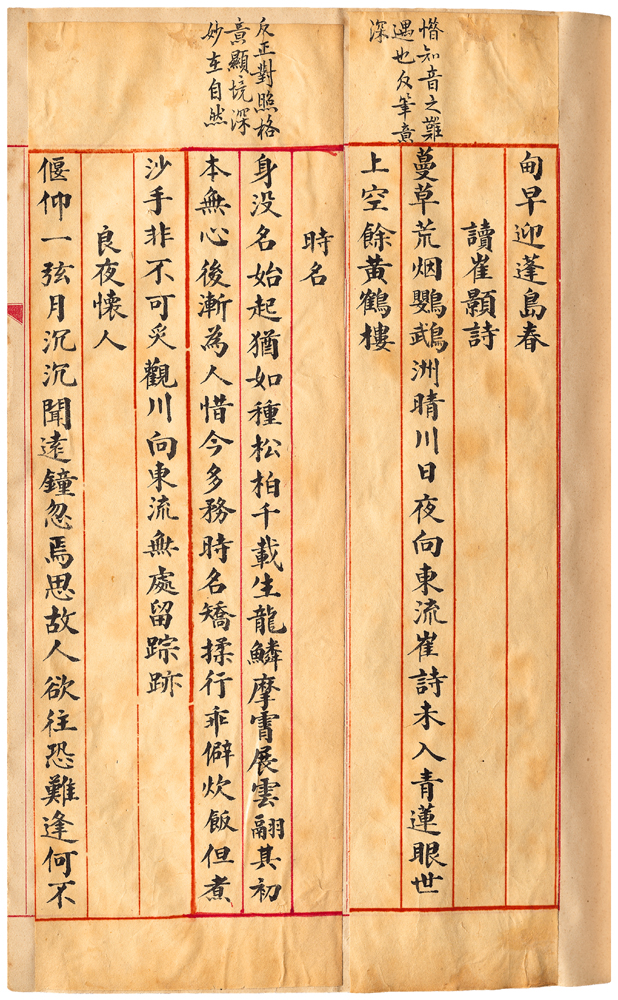 惜知音之難
遇也反筆意
深
甸早迎蓬島春
讀崔顥詩
蔓草荒烟鸚鵡洲晴川日夜向東流崔詩未入青蓮眼世
上空餘黃鶴樓
反正對照格
意顯境深
妙在自然
時名
身没名始起猶如種松柏千載生龍鱗摩霄展雲翮其初
本無心後漸為人惜今多務時名矯揉行乖僻炊飯但煮
沙手非不可炙觀川向東流無處留踪跡
良夜懷人
偃仰一弦月沉沉聞遠鐘忽焉思故人欲往恐難逢何不